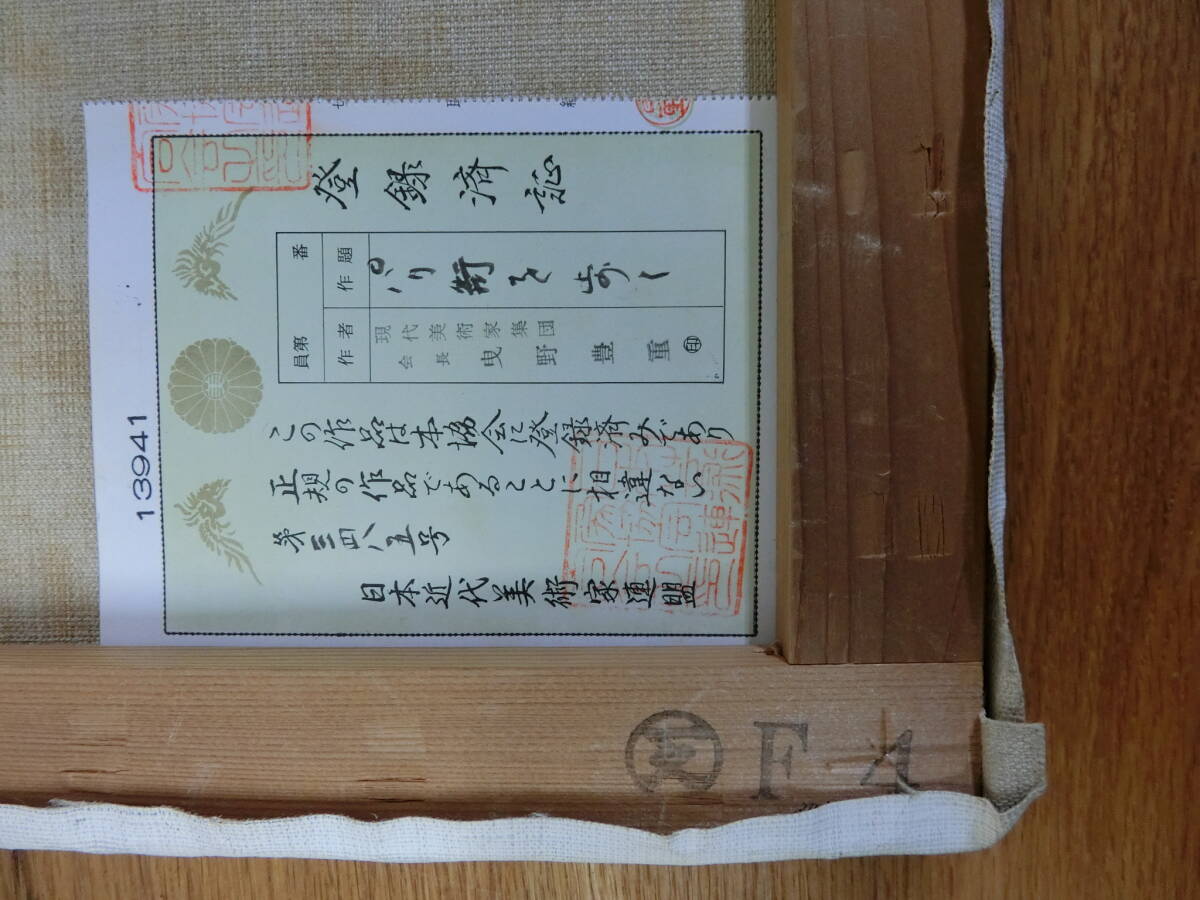 登録済証
員第 番
作題
パリ街を歩く
作者
現代美術家集団
会長 曳野豊重 ㊞
この作品は本協会に登録済みであり
正規の作品であることに相違ない
第三四八五号
日本近代美術家連盟
13941
F 4